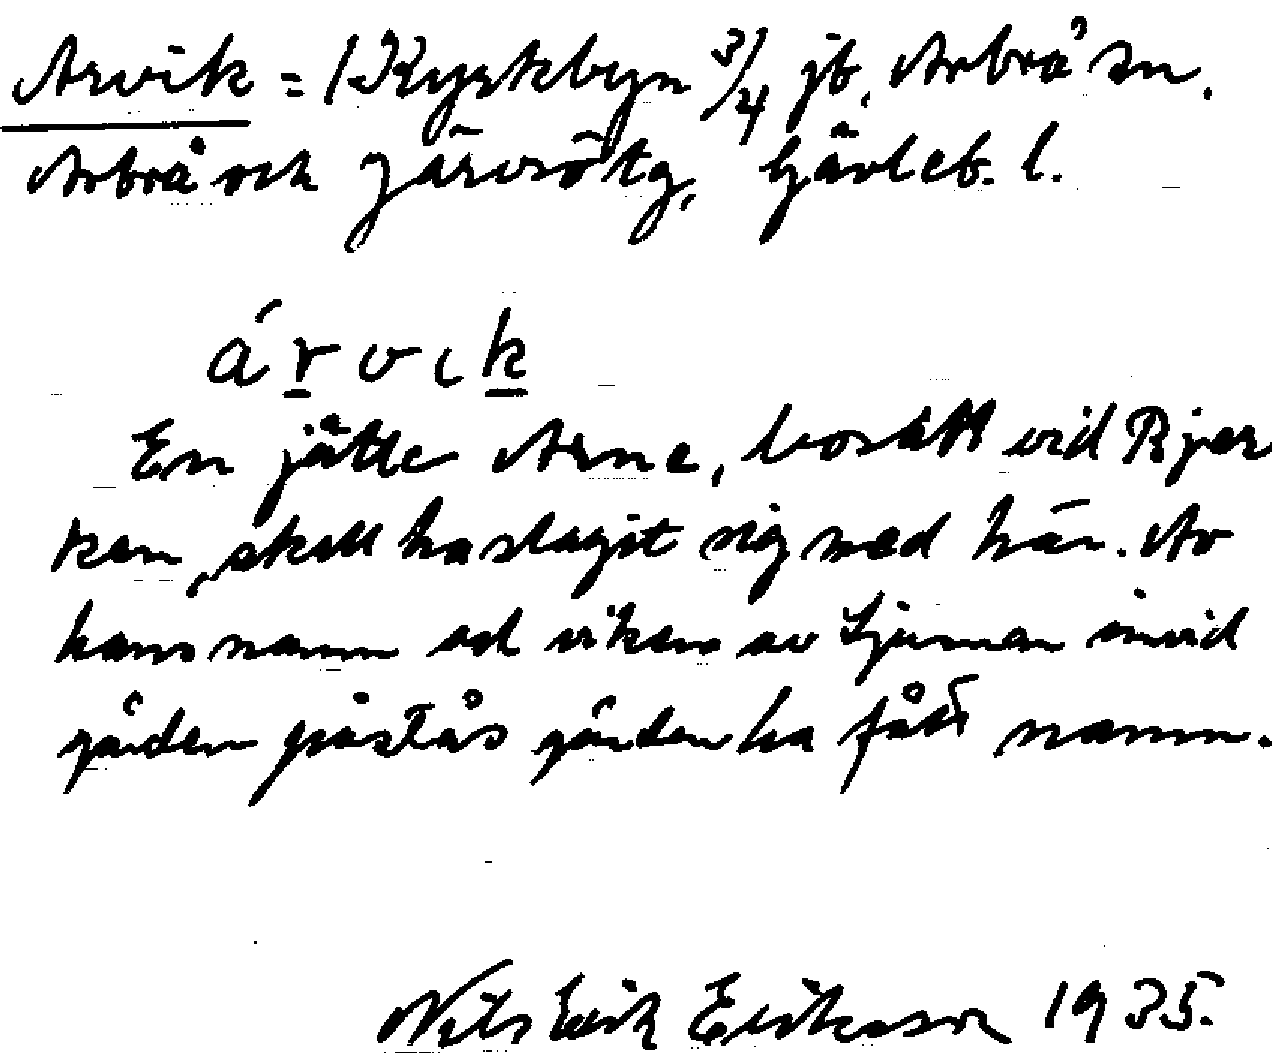 Arvik = Kyrkbyn 3/4 jb, Arbrå sn.
Arbrå och Järvsö tg, Gävleb. l.
árvık
En jätte Arne, bosatt vid Bjer
ken, skall ha slagit sig ned här. Av
hans namn och viken av Ljusnan invid
gården påstås gården ha fått namn.
Nils Erik Eriksson 1935.